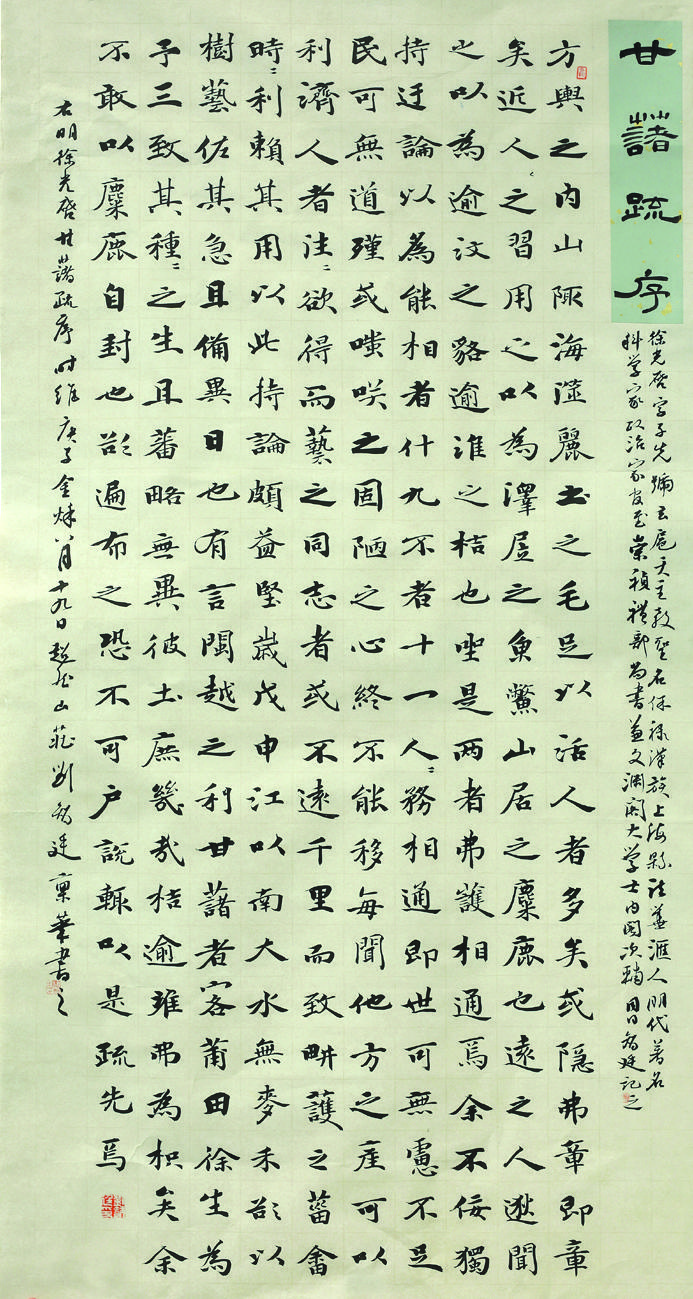 甘藷疏序
徐光啓字子先號玄扈天主教聖名保祿漢族上海縣法華滙人明代著名
科学家政治家官至崇禎禮部尚書兼文淵閣大学士內閣次輔 同日 廷記之
方輿之内山陬海澨麗土之毛足以活人者多矣或隱弗章即章
矣近人〻之習用之以為澤居之魚鱉山居之麋鹿也遠之人逖聞
之以為逾汶之貉逾淮之桔也坐是兩者弗護相通焉余不佞獨
持迂論以為能相者什九不者十一人〻務相通即世可無慮不足
民可無道殣或嗤咲之固陋之心終不能移每聞他方之產可以
利濟人者往〻欲得而藝之同志者或不遠千里而致畊護之菑畬
時〻利賴其用以此持論頗益堅歲戊申江以南大水無麥禾欲以
樹藝佐其急且備異日也有言閩越之利甘藷者客莆田徐生為
予三致其種〻之生且蕃略無異彼土庶幾哉桔逾淮弗為枳矣余
不敢以麋鹿自封也欲遍布之恐不可户説輒以是疏先焉
右明徐光啓甘藷疏序 时維庚子金秋八月十九日超然山莊劉 廷東華書之